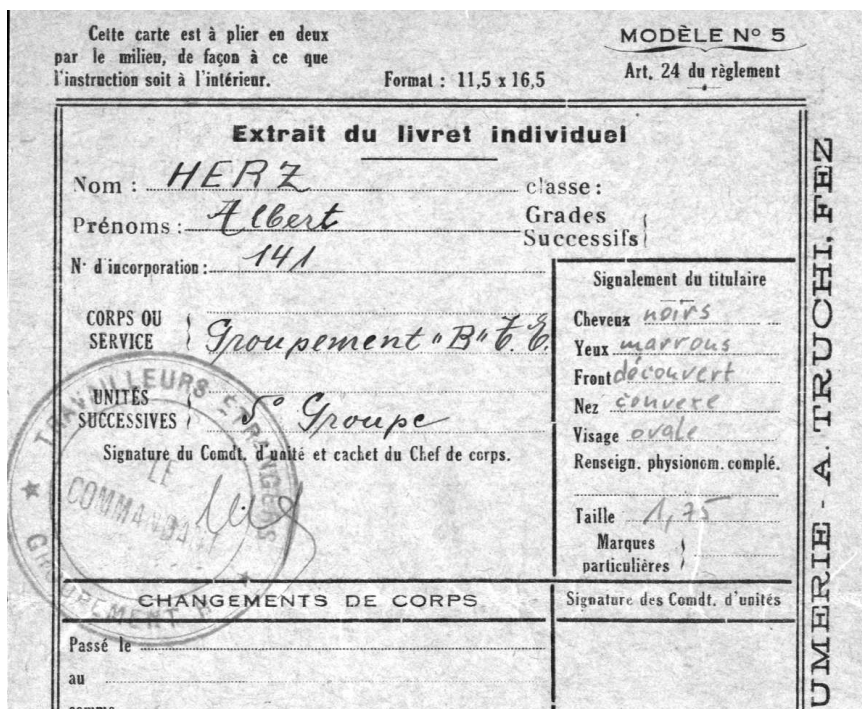 Cette carte est à plier en deux
par le milieu, de façon à ce que
l'instruction soit à l'intérieur.
Format : 11,5 x 16,5
MODÈLE N° 5
Art. 24 du règlement
Extrait du livret individuel
Nom : HERZ
classe :
Prénoms : Albert
Grades
Successifs
N° d'incorporation : 141
CORPS OU
SERVICE
Groupement "B" T.E.
UNITÉS
SUCCESSIVES
5° Groupe
Signature du Comdt. d'unité et cachet du Chef de corps.
TRAVAILLEURS ÉTRANGERS
LE
COMMANDANT
GROUPEMENT
Signalement du titulaire
Cheveux noirs
Yeux marrous
Front découvert
Nez convexe
Visage ovale
Renseign. physionom. complé.
Taille 1,75
Marques
particulières
CHANGEMENTS DE CORPS
Signature des Comdt. d'unités
Passé le
au
comme
UMERIE - A. TRUCHI, FEZ